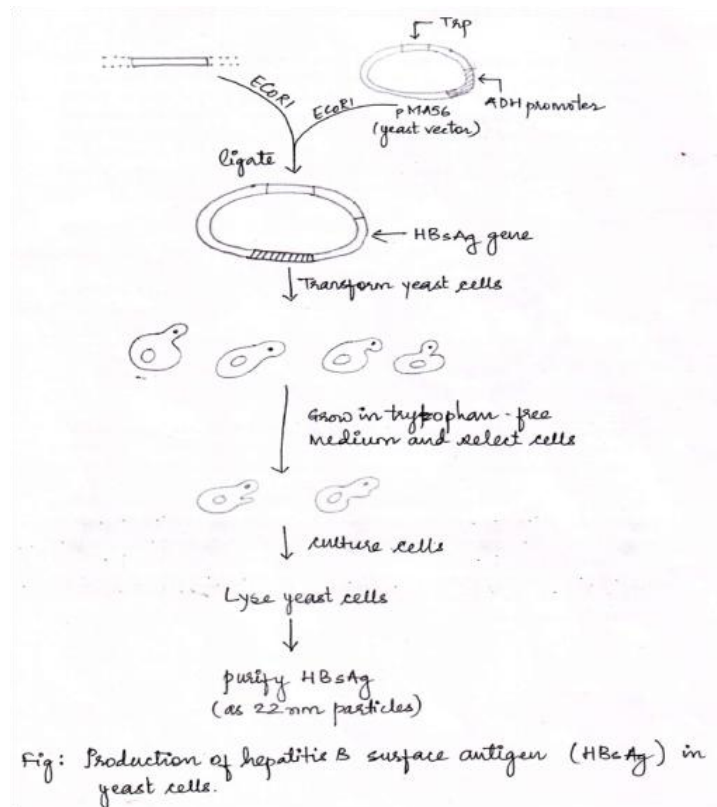 Trp
ECORI
ECORI
ADH promoter
pMA56
(yeast vector)
ligate
HBsAg gene
Transform yeast cells
Grow in tryptophan-free
medium and select cells
culture cells
Lyse yeast cells
purify HBsAg
(as 22nm particles)
Fig: Production of hepatitis B surface antigen (HBsAg) in
yeast cells.